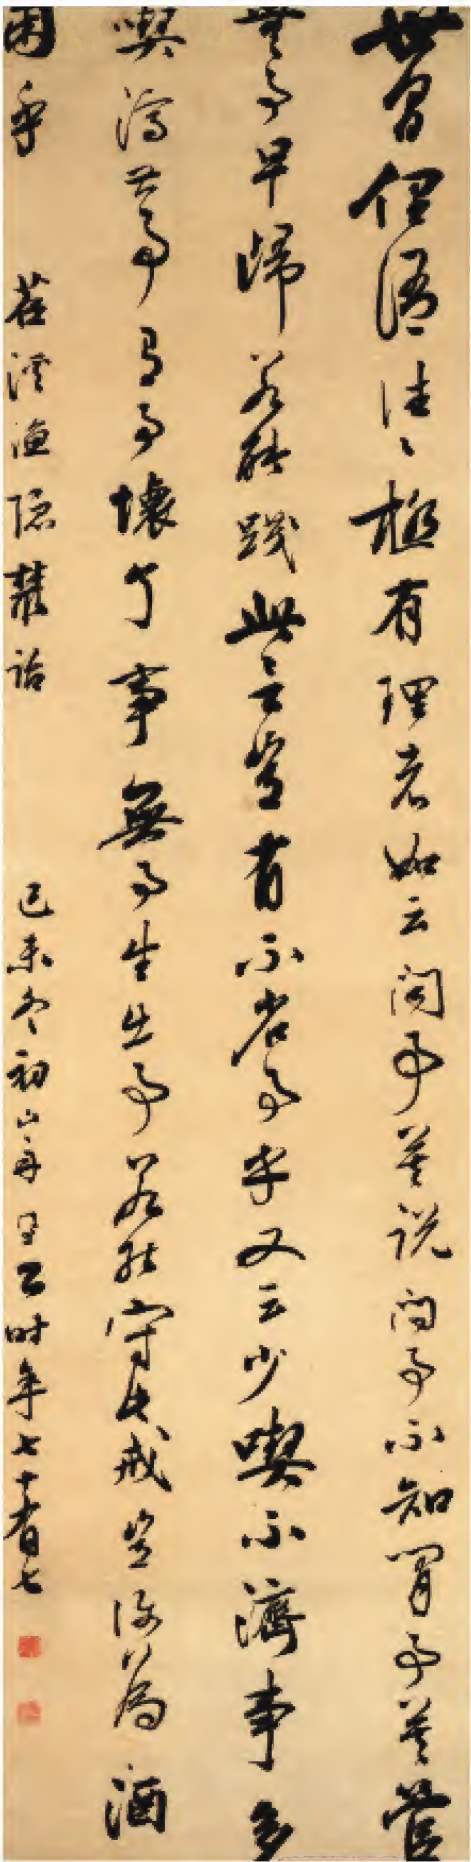 世間俚語往往極有理者如云聞事莫說問事不知閒事莫管
無事早歸若能踐此言豈有不省事乎又云少喫不濟事多
喫濟甚事有事壞了事無事生出事若能守此戒豈復為酒
困乎 苕溪漁隱叢話 己未冬初山舟同書時年七十有七